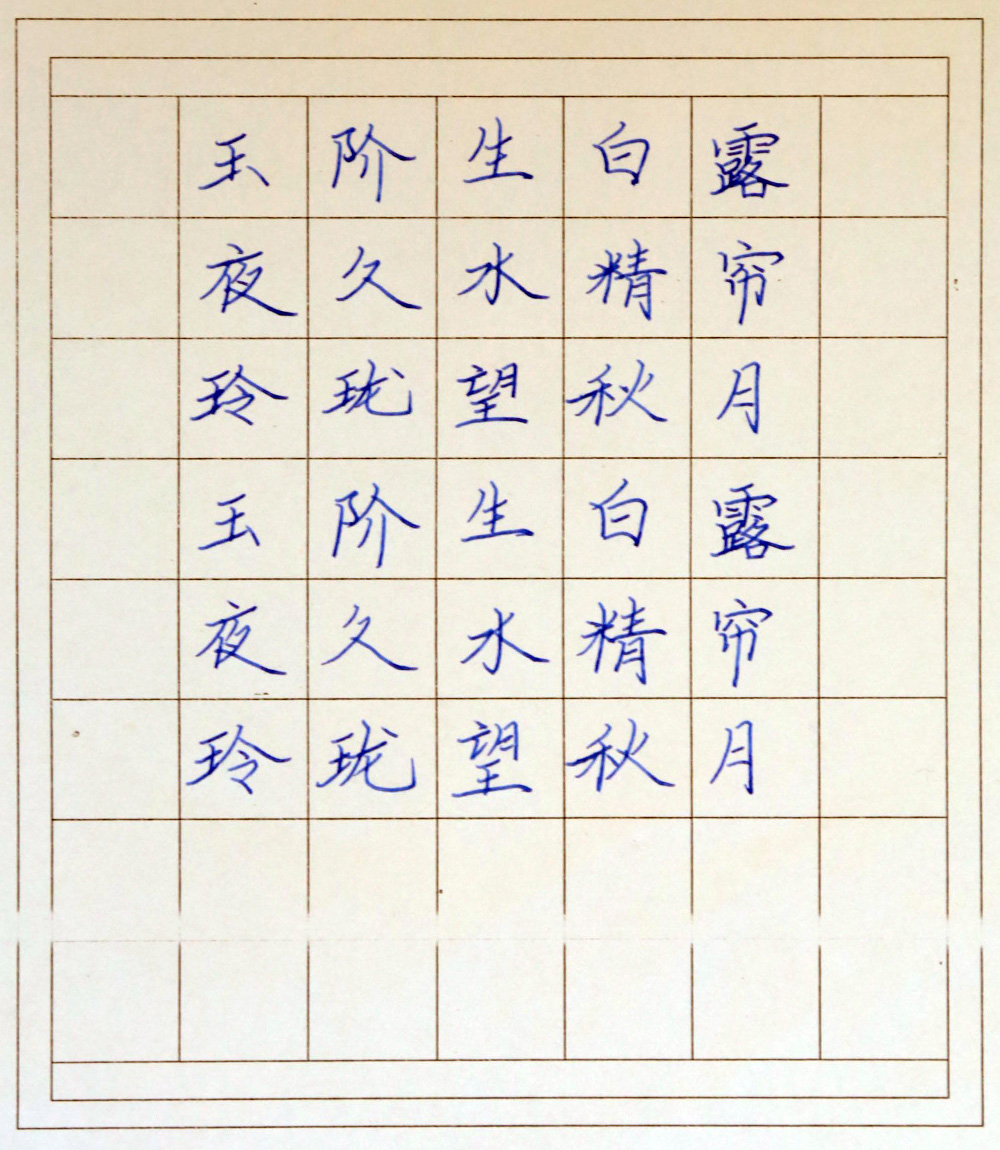 玉阶生白露
夜久水精帘
玲珑望秋月
玉阶生白露
夜久水精帘
玲珑望秋月